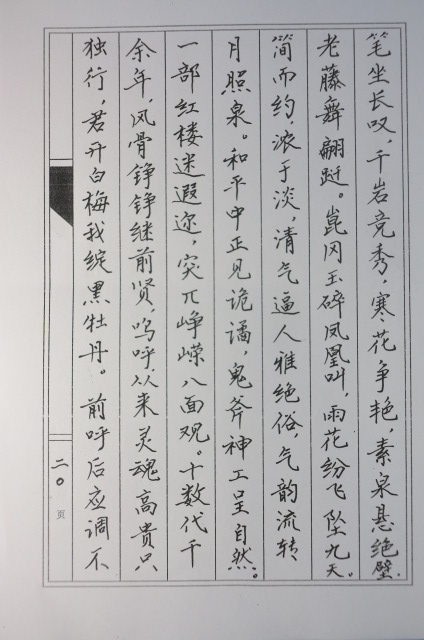 笔坐长叹，千岩竞秀，寒花争艳，素泉悬绝壁．
老藤舞翩跹。崑冈玉碎凤凰叫，雨花纷飞坠九天。
简而约，浓于淡，清气逼人雅绝俗，气韵流转
月照泉。和平中正见诡谲，鬼斧神工呈自然。
一部红楼迷遐迩，突兀峥嵘八面观。十数代千
余年，风骨铮铮继前贤，呜呼从来灵魂高贵只
独行，君开白梅我绽黑牡丹。前呼后应调不
二〇页